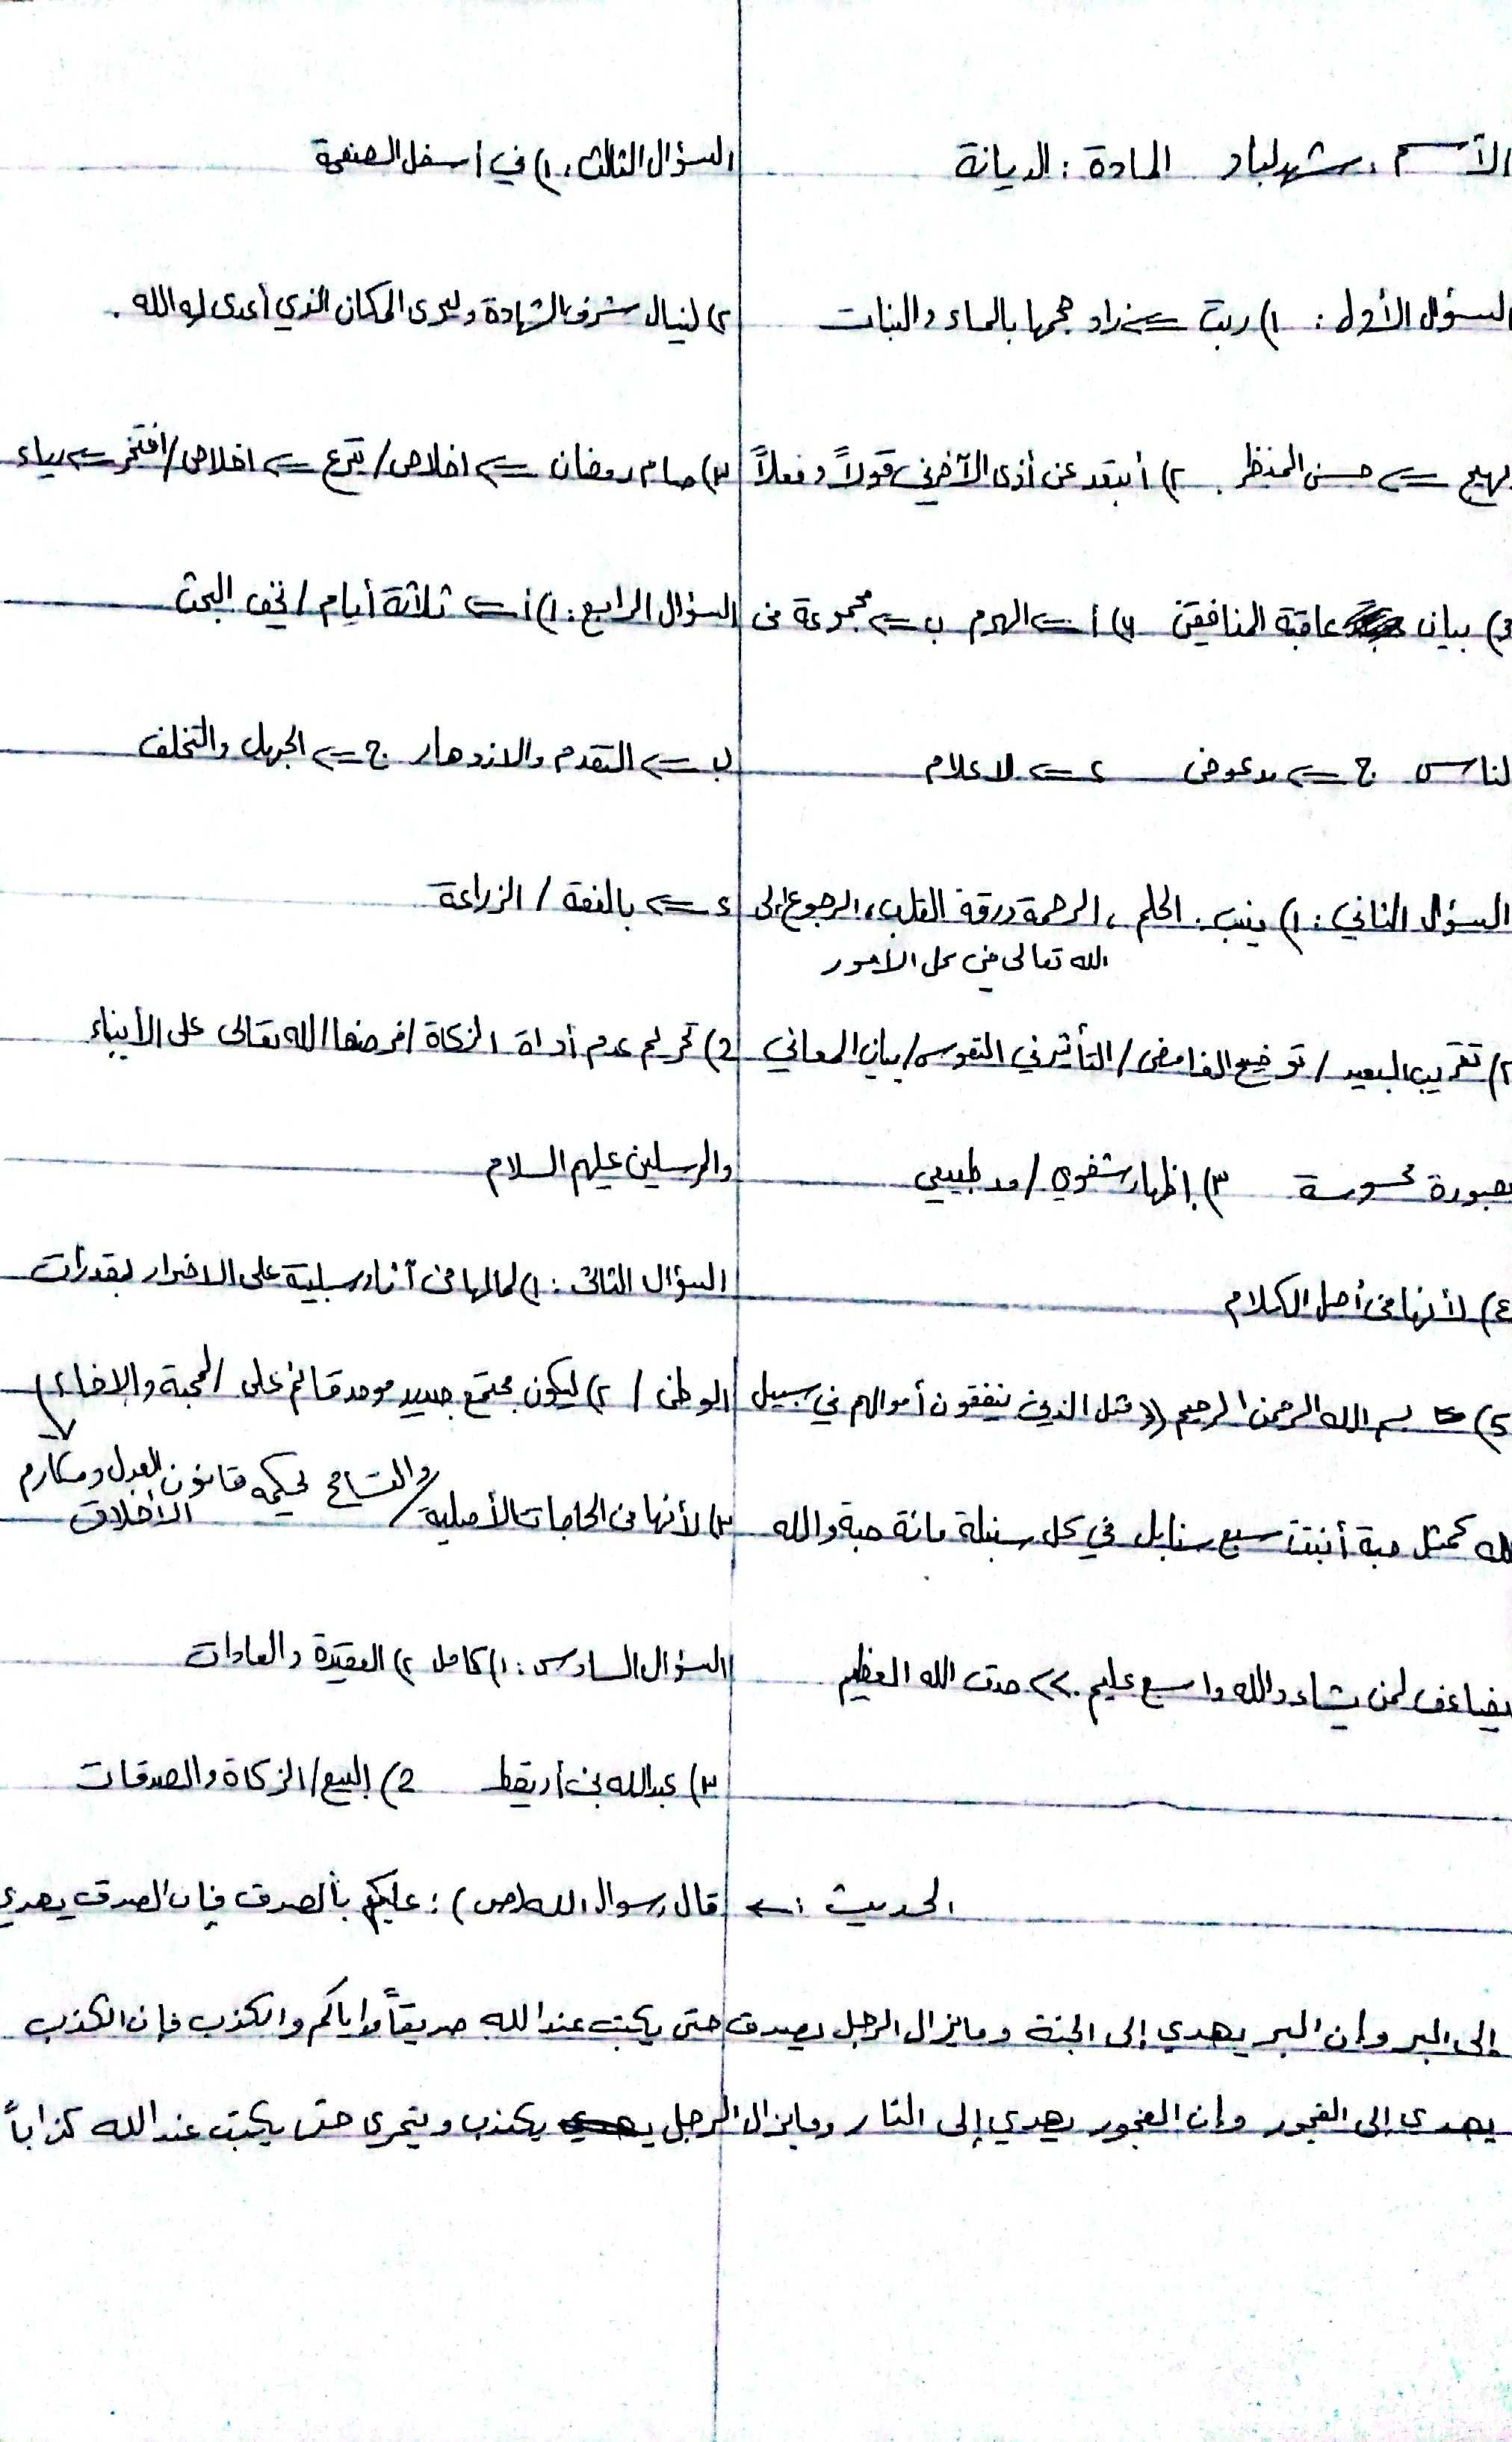 الأسم : شهد لباد المادة : الديانة
السؤال الأول : ١) ربت <= زاد حجمها بالماء والنبات
بهيج <= حسن المنظر . ٢) أبتعد عن أذى الآخرين قولاً وفعلاً
3) بيان عاقبة المنافقين ٤) أ <= الهرم ب <= مجموعة من
لناس ج <= بدعوض د <= لا علام
السؤال الثاني : ١) ينيب : الحلم ، الرحمة ورقة القلب ، الرجوع إلى
الله تعالى في كل الأمور
٢) تقريب البعيد / توضيح الغامض / التأثير في النفوس / بيان المعاني
بصورة محسوسة ٣) إظهار شفوي / مد طبيعي
٤) لأنها من أصل الكلام
5) بسم الله الرحمن الرحيم (( مثل الذين ينفقون أموالهم في سبيل
الله كمثل حبة أنبتت سبع سنابل في كل سنبلة مائة حبة والله
يضاعف لمن يشاء والله واسع عليم . >> صدق الله العظيم
السؤال الثالث : ١) في أسفل الصفحة
٢) لينال شرف الشهادة وليرى المكان الذي أعدى له الله .
٣) صام رمضان <= اخلاص / تبرع <= اخلاص / افتخر <= رياء
السؤال الرابع : ١) أ <= ثلاثة أيام / نخف البحث
ب <= التقدم والازدهار ج <= الجهل والتخلف
د <= بالنفة / الزراعة
2) تحريم عدم أداة الزكاة / فرضها الله تعالى على الأنبياء
والمرسلين عليهم السلام
السؤال الثالث : ١) لما لها من آثار سلبية على الاضرار بقدرات
الوطن / ٢) ليكون مجتمع جديد موحد قائم على المحبة والإخاء
والتسامح يحكمه قانون العدل ومكارم
الأخلاق
٣) لأنها من الحاجات الأصلية /
السؤال السادس : ١) كامل ٢) العقيدة والعادات
٣) عبدالله بن أريقط 2) البيع / الزكاة والصدقات
الحديث : <- قال رسوال الله (ص) : عليكم بألصدق فإن الصدق يهدي
إلى البر وإن البر يهدي إلى الجنة وما يزال الرجل يصدق حتى يكتب عند الله صديقاً وإياكم والكذب فإن الكذب
يهدي إلى الفجور وإن الفجور يهدي إلى النار وما يزال الرجل يكذب ويتحرى حتى يكتب عند الله كذاباً